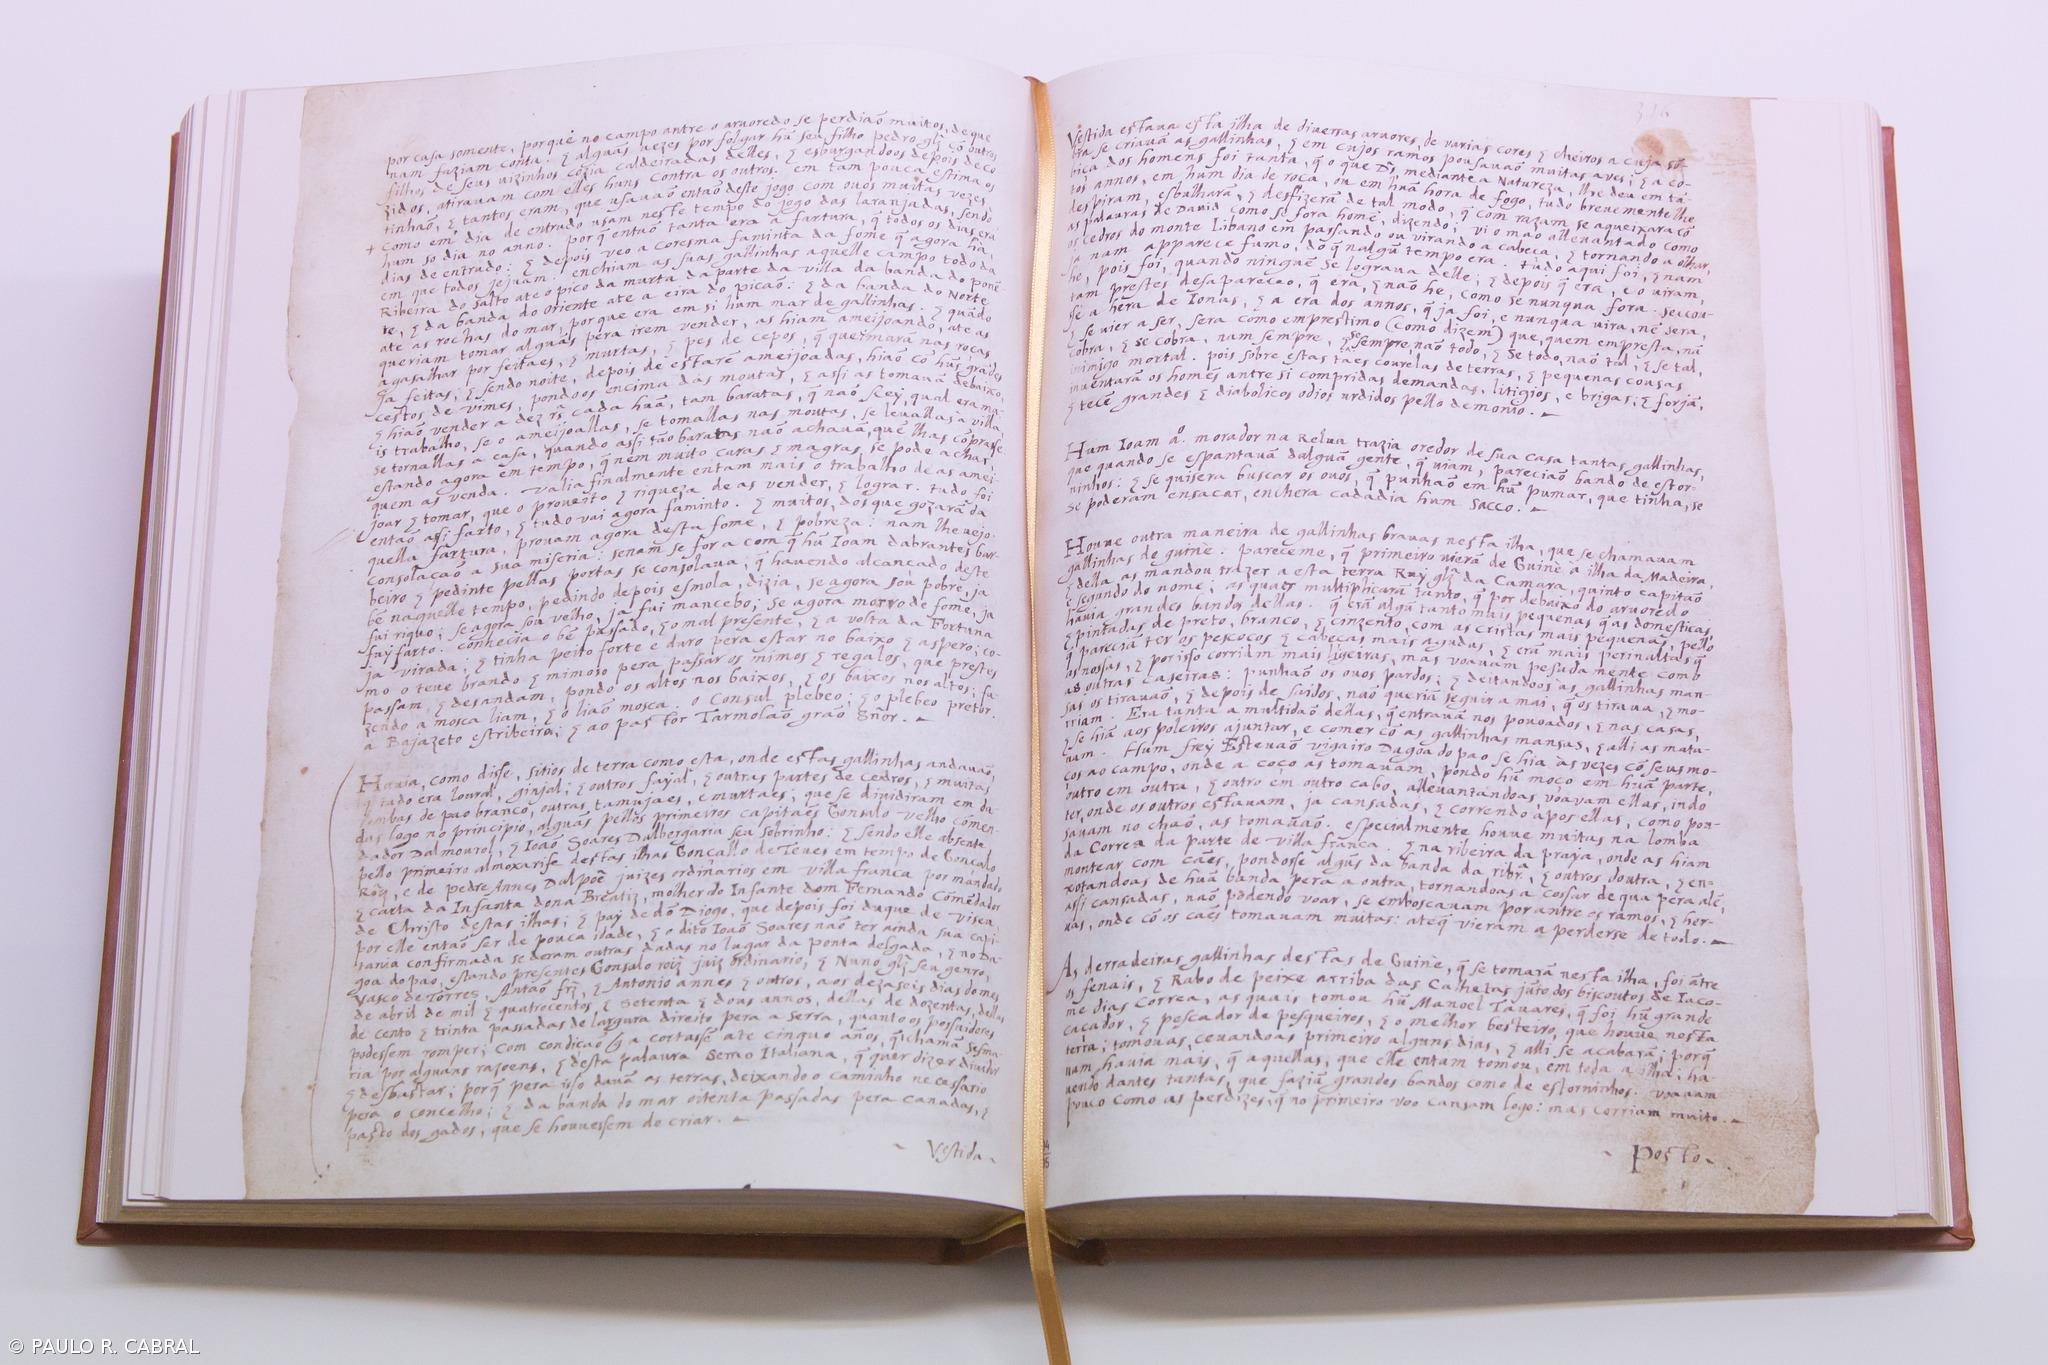 por casa somente, porque no campo antre o aruoredo se perdiaõ muitos, de que
nam faziam conta. E alguãs uezes por folgar hũ seu filho pedro glz̃ cõ outros
filhos de seus uizinhos cozia caldeiradas delles, & esburgandoos depois de co
zidos, atirauam com elles huns contra os outros. em tam pouca estima os
tinhaõ, & tantos eram, que usauaõ entaõ deste jogo com ouos muitas vezes,
como em dia de entrudo usam neste tempo do jogo das laranjadas, sendo
hum so dia no anno. porq̃ entaõ tanta era a fartura, q̃ todos os dias erã
dias de entrudo: & depois veo a coresma faminta da fome q̃ agora ha,
em que todos jejuam. enchiam as suas gallinhas aquelle campo todo da
Ribeira do salto ate o pico da murta da parte da villa da banda do ponẽ
te, & da banda do oriente ate a eira do picaõ: & da banda do Norte
ate as rochas do mar, porque era em si hum mar de gallinhas. E quãdo
queriam tomar alguãs pera irem vender, as hiam ameijoando, ate as
agasalhar por feitaes, & murtas, & pes de cepos, q̃ queimarã nas rocas
ja feitas; & sendo noite, depois de estarẽ ameijoadas, hiaõ cõ hũs grãdes
cestos de vimes, pondoos encima das moutas, & assi as tomauã debaixo,
& hiaõ vender a dez rs̃ cada huã, tam baratas, q̃ naõ sey, qual era ma
is trabalho, se o ameijoallas, se tomallas nas moutas, se leuallas a villa,
se tornallas a casa, quando assi tão baratas naõ achauã, que lhas cõprasse
estando agora em tempo, q̃ nem muito caras & magras, se pode achar,
quem as venda. Valia finalmente entam mais o trabalho de as amei-
joar & tomar, que o proueito & riqueza de as vender, & lograr. tudo foi
entaõ assi farto, & tudo vai agora faminto. E muitos, dos que gozarã da
quella fartura, prouam agora desta fome, & pobreza: nam lhe uejo
consolaçaõ a sua miseria: senam se for a com q̃ hũ Ioam dabrantes bar-
beiro & pedinte pellas portas se consolaua, q̃ hauendo alcancado deste
bẽ naquelle tempo, pedindo depois esmola, dizia, se agora sou pobre, ja
fui riquo; se agora sou velho, ja fui mancebo; se agora morro de fome, ja
fuy farto. conhecia o bẽ passado, & o mal presente, & a volta da Fortuna
ja virada: & tinha peito forte e duro pera estar no baixo & aspero; co-
mo o teue brando & mimoso pera passar os mimos & regalos, que prestes
passam, & desandam, pondo os altos nos baixos, & os baixos nos altos; fa-
zendo a mosca liam, & o liaõ mosca. o Consul plebeo; & o plebeo pretor.
a Bajazeto estribeiro; & ao pastor Tarmolaõ graõ Sñor.
Hauia, como disse, sitios de terra como esta, onde estas gallinhas andauaõ,
q̃ tudo era loural, ginjal; & outros fayal, & outras partes de Cedros, & muitas
lombas de pao branco, outras tamujaes, e murtaes; que se diuidiram em da-
das logo no principio, alguãs pellos primeiros capitaẽs Gonsalo velho comen-
dador Dalmourol, & Ioaõ Soares Dalbergaria seu sobrinho: & sendo elle absente
pello primeiro almoxarife destas ilhas Goncallo de Teues em tempo de Gonçalo
Roiz̃, e de pedre Annes Dalpoẽ juizes ordinarios em villa franca por mandado
& carta da Infanta dona Breatiz, molher do Infante dom Fernando Comẽdador
de Christo destas ilhas; & pay de dõ Diogo, que depois foi duque de visea,
por elle entaõ ser de pouca idade, & o dito Ioaõ Soares naõ ter ainda sua capi-
tania confirmada se deram outras dadas no lugar da ponta delgada, & no Da-
goa do pao, estando presentes Gonsalo roiz̃ juiz ordinario, & Nuno glz̃ seu genro,
Vasco de Torres, Antaõ frz̃, & Antonio annes & outros, aos dezaseis dias do mes
de abril de mil & quatrocentos & setenta & dous annos, dellas de dozentas, dellas
de cento & trinta passadas de largura direito pera a serra, quanto os possuidores
podessem romper; com condicaõ q̃ a cortassẽ ate cinquo años, q̃ chamã sesma-
ria por alguãs razoens, & desta palaura sermo Italiana, q̃ quer dizer diuidir
& desbastar; porq̃ pera isso dauã as terras, deixando o caminho necessario
pera o concelho; & da banda do mar oitenta passadas pera canadas, &
pasto dos gados, que se houuessem de criar.
Vestida
316
Vestida estaua esta ilha de diuersas aruores de varias cores & cheiros a cuja sõ
bra se criauã as gallinhas, & em cujos ramos pousauaõ muitas aues; & a co-
biça dos homens foi tanta, q̃ o que Ds̃ mediante a Natureza, lhe deu em tã
tos annos, em hum dia de roca, ou em huã hora de fogo, tudo breuemente lhe
despiram, esbulharã, & desfizerã de tal modo, q̃ com razam se aqueixara cõ
as palauras de Dauid como se fora homẽ, dizendo; vi o mao alleuantado como
os cedros do monte Libano em passando ou virando a cabeça, & tornando a olhar,
ja nam apparece fumo, do q̃ nalgũ tempo era. tudo aqui foi, & nam
he, pois foi, quando ninguẽ se lograua delle; & depois q̃ era, & o uiram,
tam prestes desapareceo, q̃ era, & naõ he, como se nunqua fora. seccou
se a hera de Ionas, & a era dos annos, q̃ ja foi, e nunqua uira, nẽ sera.
& se uier a ser, sera como emprestimo (como dizem) que, quem empresta, nã
cobra, & se cobra, nam sempre, & se sempre, naõ todo, & se todo, naõ tal, & se tal,
inimigo mortal. pois sobre estas taes courelas de terras, & pequenas cousas
inuentarã os homẽs antre si compridas demandas, litigios, e brigas; & forjã,
& tecẽ grandes & diabolicos odios urdidos pello demonio.
Hum Ioam aº. morador na Relua trazia oredor de sua casa tantas gallinhas,
que quando se espantauã dalguã gente, q̃ uiam, pareciaõ bando de estor-
ninhos: & se quisera buscar os ouos, q̃ punhaõ em hũ pumar, que tinha, se
se poderam ensacar, enchera cada dia hum sacco.
Houue outra maneira de gallinhas brauas nesta ilha, que se chamauam
gallinhas de guine. pareceme, q̃ primeiro uierã de Guinè à ilha da Madeira,
& della as mandou trazer a esta terra Ruy glz̃ da Camara, quinto capitaõ
e segundo do nome; as quaes multiplicarã tanto, q̃ por debaixo do aruoredo
hauia grandes bandos dellas. q̃ erã algũ tanto mais pequenas q̃ as domesticas,
& pintadas de preto, branco, & cinzento, com as cristas mais pequenas, pello
q̃ pareciã ter os pescocos & cabeças mais agudas, & erã mais perinaltas q̃
as nossas, & por isso corriam mais ligeiras, mas voauam pesadamente como
as outras caseiras: punhaõ os ouos pardos; & deitandoos às gallinhas man-
sas os tirauaõ, & depois de saidos, naõ queriã seguir a mai, q̃ os tiraua, & mo-
rriam. Era tanta a multidaõ dellas, q̃ entrauã nos pouoados, & nas casas,
& se hiã aos poleiros ajuntar, e comer cõ as gallinhas mansas, & alli as mata-
uam. Hum frey Esteuaõ vigairo Dagoa do pao se hia às vezes cõ seus mo-
ços ao campo, onde a coço as tomauam, pondo hũ moço em huã parte,
outro em outra, & outro em outro cabo, alleuantandoas, voauam ellas, indo
ter, onde os outros estauam, ja cansadas, & correndo apos ellas, como pou-
sauam no chaõ, as tomauaõ. especialmente houue muitas na lomba
da Correa da parte de villa franca. & na ribeira da praya, onde as hiam
montear com caẽs, pondosse algũs da banda da ribrª. & outros doutra, & en-
xotandoas de huã banda pera a outra, tornandoas a cossar de qua pera alẽ,
assi cansadas, naõ podendo voar, se emboscauam por antre os ramos, & her-
uas, onde cõ os caẽs tomauam muitas: ateq̃ vieram a perderse de todo.
As derradeiras gallinhas destas de Guinè, q̃ se tomarã nesta ilha, foi ãtre
os fenais, & Rabo de peixe arriba das Calhetas jũto dos biscoutos de Iaco-
me dias Correa, as quais tomou hũ Manoel Tauares, q̃ foi hũ grande
caçador, & pescador de pesqueiros, & o melhor besteiro, que houue nesta
terra; tomouas, ceuandoas primeiro alguns dias, & alli se acabarã; porq̃
nam hauia mais, q̃ aquellas, que elle entam tomou, em toda a ilha; ha-
uendo dantes tantas, que faziã grandes bandos como de estorninhos. voauam
pouco como as perdizes, q̃ no primeiro voo cansam logo: mas corriam muito.
Posto
© PAULO R. CABRAL